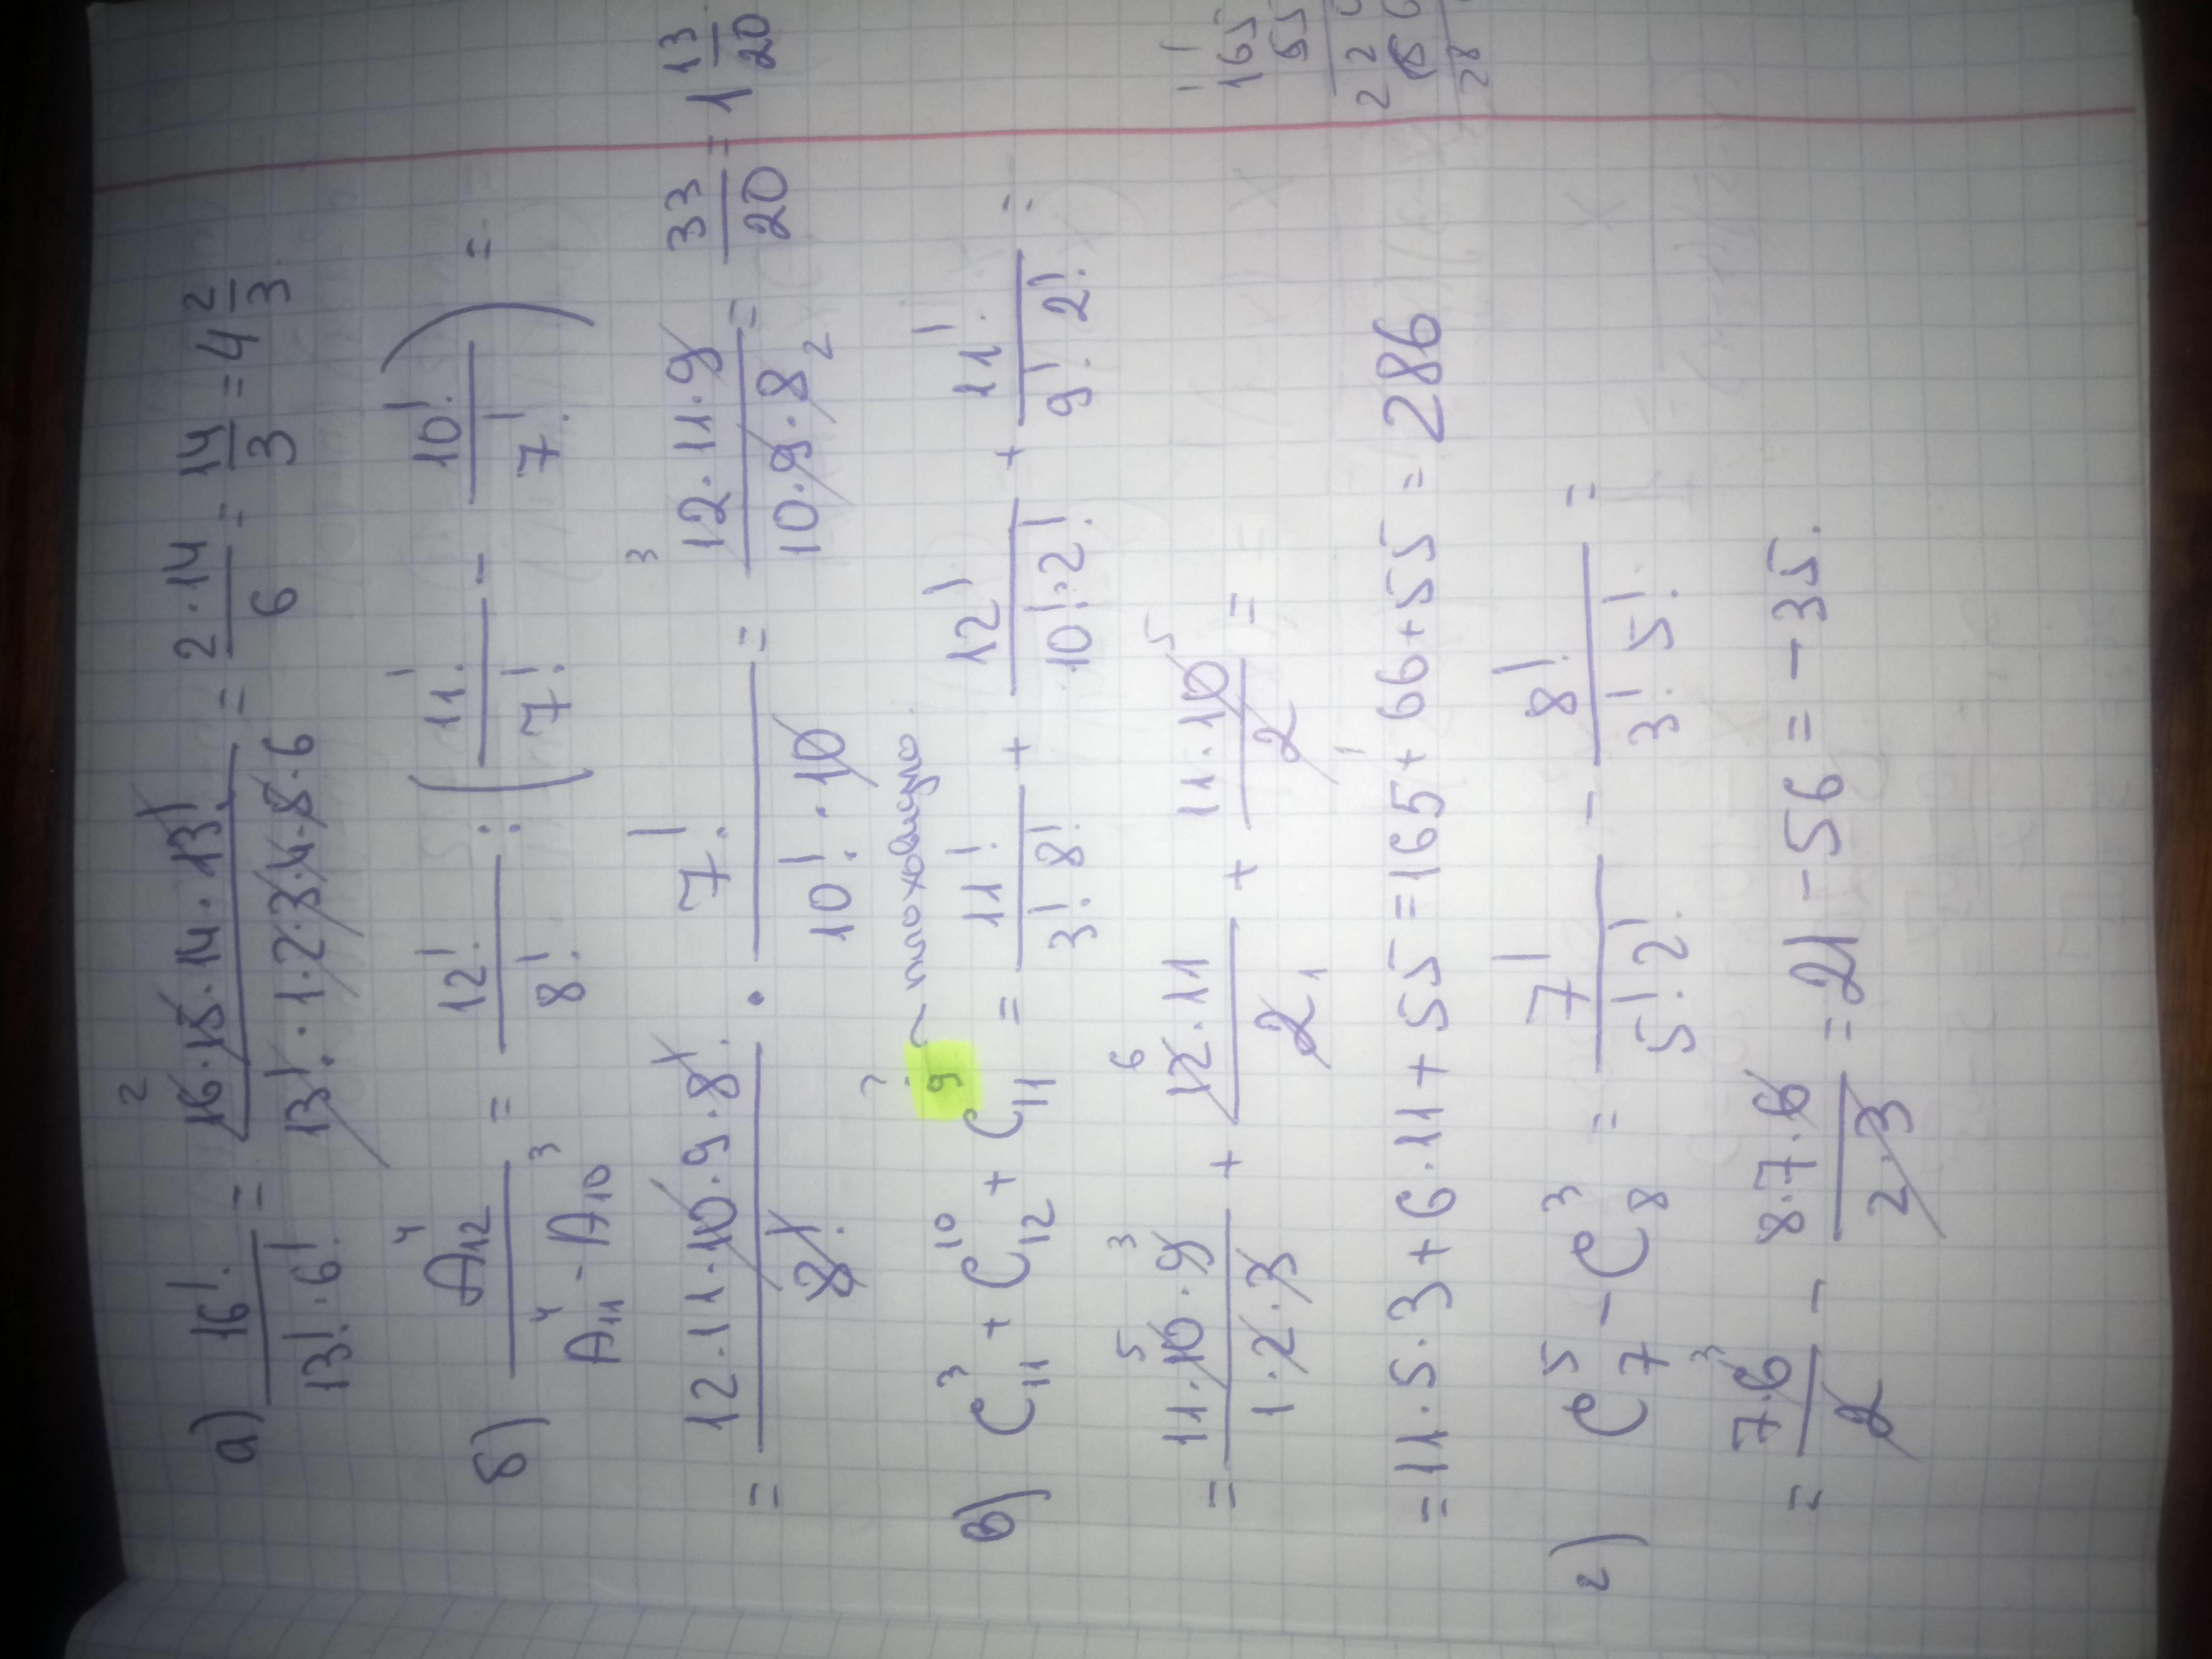 а) 16!/(13!·6!) = (16·15·14·13!)/(13!·1·2·3·4·5·6) = (2·14)/6 = 14/3 = 4 2/3
б) A₁₂⁴/(A₁₁⁴ - A₁₀³) = 12!/8! : (11!/7! - 10!/7!) =
= (12·11·10·9·8!)/8! · 7!/(10!·10) = (12·11·9)/(10·9·8) = 33/20 = 1 13/20
в) C₁₁³ + C₁₂¹⁰ + C₁₁⁹ = 11!/(3!·8!) + 12!/(10!·2!) + 11!/(9!·2!) =
? плохо видно.
= (11·10·9)/(1·2·3) + (12·11)/2 + (11·10)/2 =
= 11·5·3 + 6·11 + 55 = 165 + 66 + 55 = 286
165
г) C₇⁵ - C₈³ = 7!/(5!·2!) - 8!/(3!·5!) =
= (7·6)/2 - (8·7·6)/(2·3) = 21 - 56 = -35.